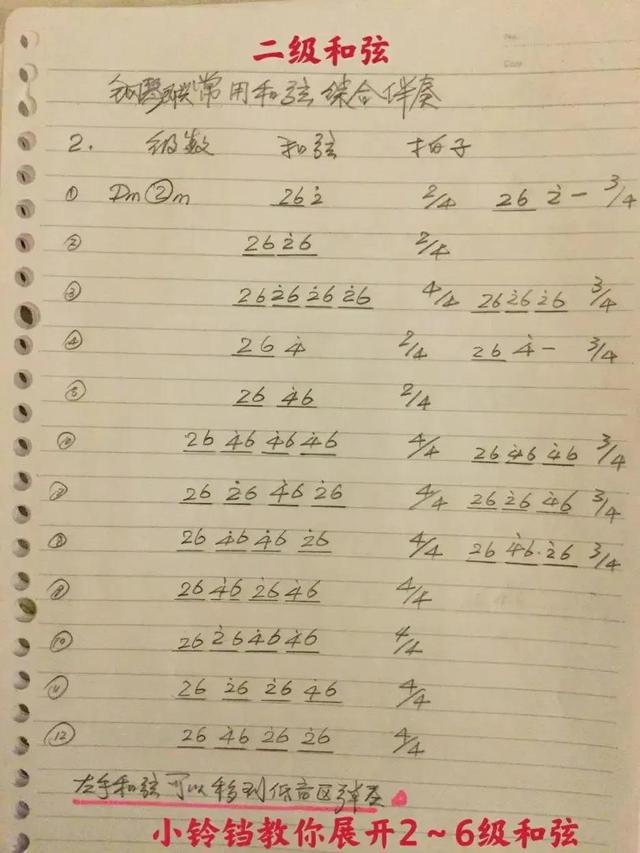 二级和弦
钢琴常用和弦综合伴奏
2. 级数 和弦 拍子
① Dm ②m 26 2̇ 2/4 26 2̇ - 3/4
② 26 2̇6 2/4
③ 26 2̇6 2̇6 2̇6 4/4 26 2̇6 2̇6 3/4
④ 26 4̇ 2/4 26 4̇ - 3/4
⑤ 26 4̇6 2/4
⑥ 26 4̇6 4̇6 4̇6 4/4 26 4̇6 4̇6 3/4
⑦ 26 2̇6 4̇6 2̇6 4/4 26 2̇6 4̇6 3/4
⑧ 26 4̇6 4̇6 2̇6 4/4 26 4̇6 2̇6 3/4
⑨ 26 4̇6 2̇6 4̇6 4/4
⑩ 26 2̇6 4̇6 4̇6 4/4
⑪ 26 2̇6 2̇6 4̇6 4/4
⑫ 26 4̇6 2̇6 2̇6 4/4
左手和弦可以移到低音区弹奏。
小铃铛教你展开2~6级和弦